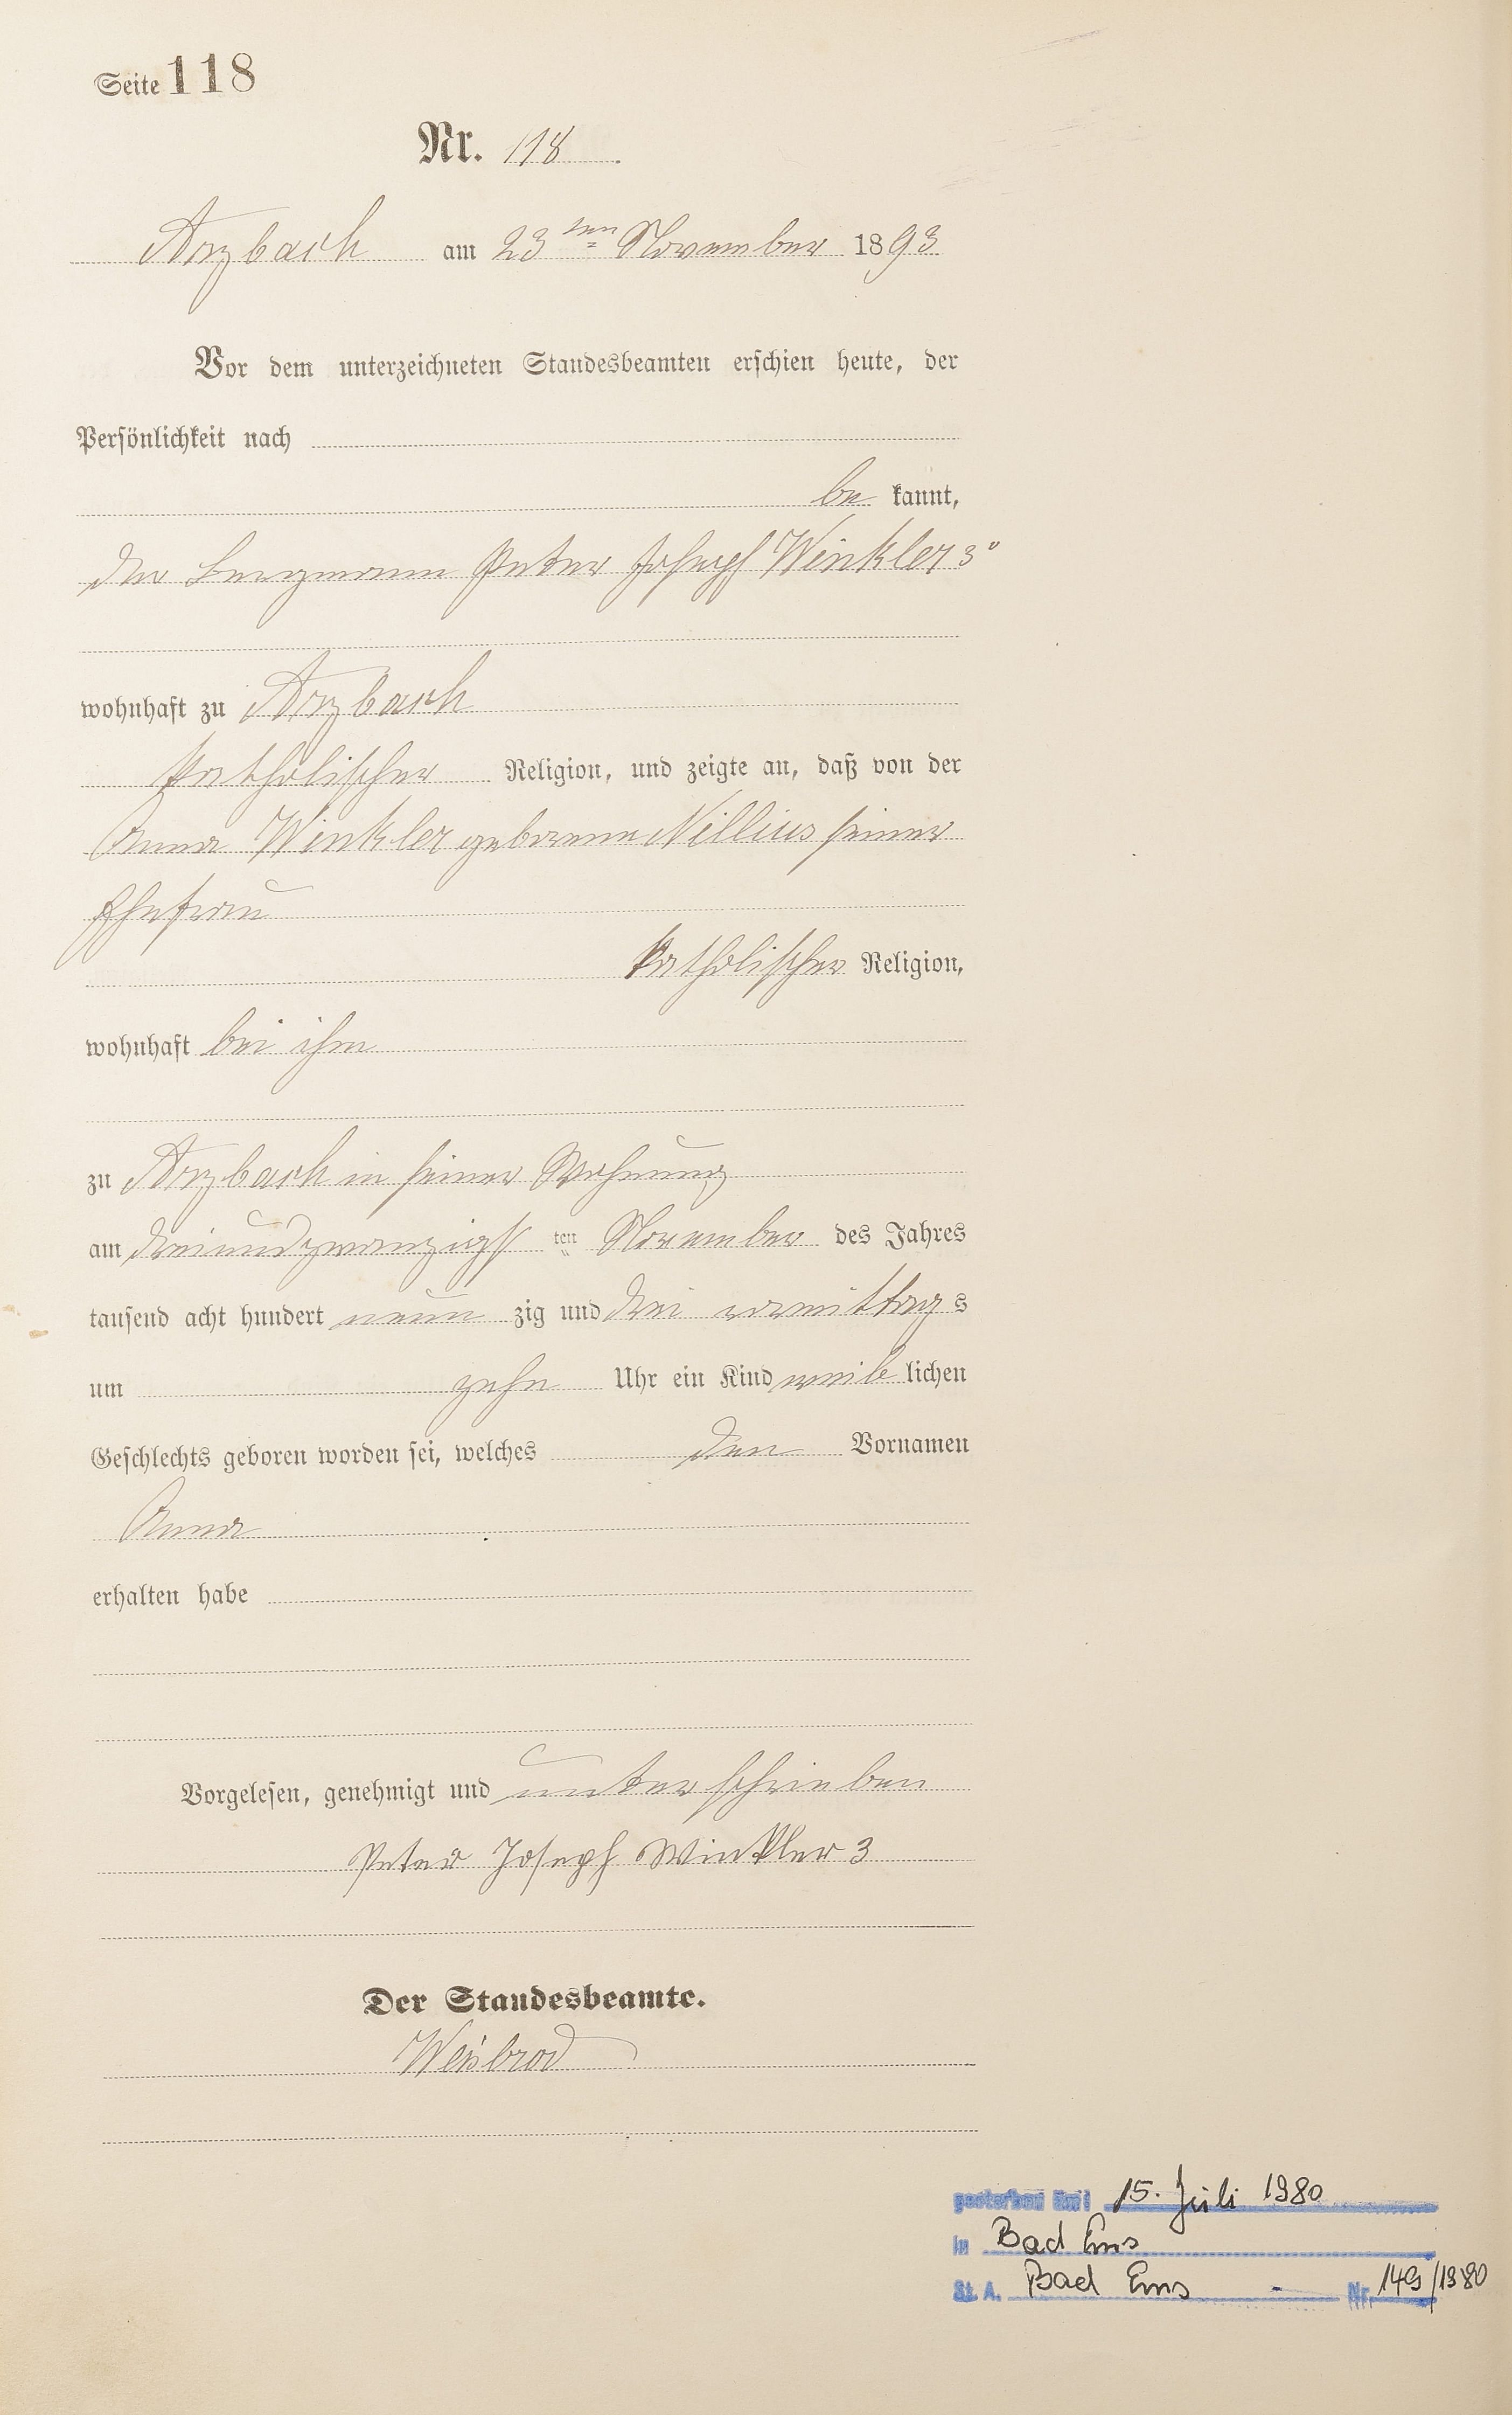 Seite 118
Nr. 118.
Arzbach am 23ten November 1893
Vor dem unterzeichneten Standesbeamten erschien heute, der
Persönlichkeit nach
be kannt,
der Bergmann Peter Joseph Winkler 3º
wohnhaft zu Arzbach
katholischer Religion, und zeigte an, daß von der
Anna Winkler geborene Nillius seiner
Ehefrau
katholischer Religion,
wohnhaft bei ihm
zu Arzbach in seiner Wohnung
am dreiundzwanzigst ten November des Jahres
tausend acht hundert neun zig und drei vormittags
um zehn Uhr ein Kind weib lichen
Geschlechts geboren worden sei, welches den Vornamen
Anna
erhalten habe
Vorgelesen, genehmigt und unterschrieben
Peter Joseph Winkler 3
Der Standesbeamte.
Weisbrod
gestorben am: 15. Juli 1980
in Bad Ems
St. A. Bad Ems - Nr. 149/1980